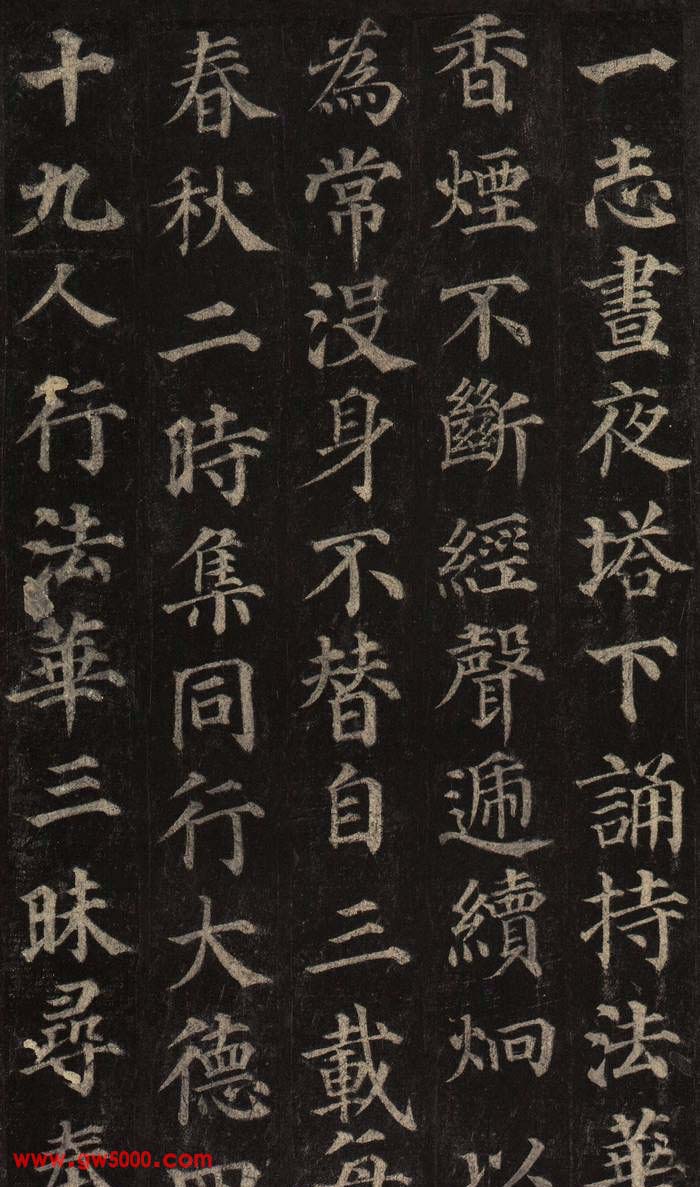 一志晝夜塔下誦持法華
香煙不斷經聲遞續炯以
為常没身不替自三載每
春秋二時集同行大德四
十九人行法華三昧尋奉
www.gw5000.com